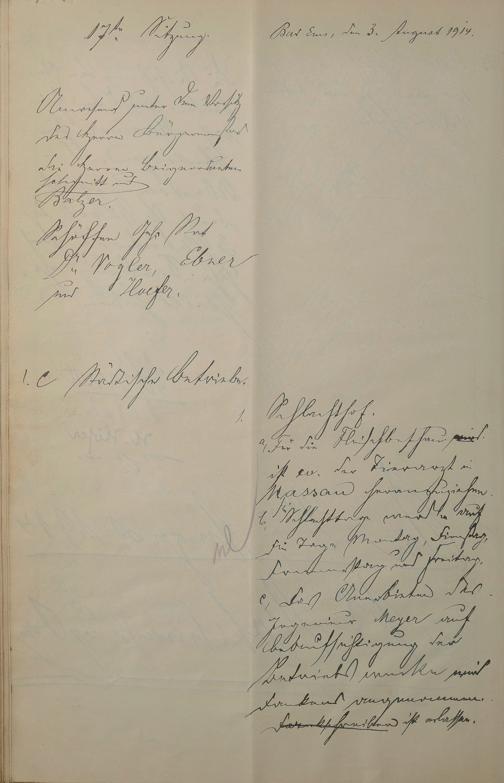 17te Sitzung.
Bad Ems, den 3. August 1914.
Anwesend unter dem Vorsitz
des Herrn Bürgermeister
die Herren Beigeordneten
und
Balzer.
Schöffen Geh. Rat
Dr. Vogler, Ebner
und Hoefer.
1. C Städtische Betriebe.
1.
Schlachthof.
a, Für die Fleischbeschau
ist ev. der Tierarzt in
Nassau heranzuziehen.
b, Schlachttage werden auf
die Tage Montag, Dinstag,
Donnerstag und Freitag.
c, Das Anerbieten des
Ingenieur Meyer auf
Beaufsichtigung der
Betriebs wurde mit
Dank angenommen.
Dankschreiben ist erlassen.